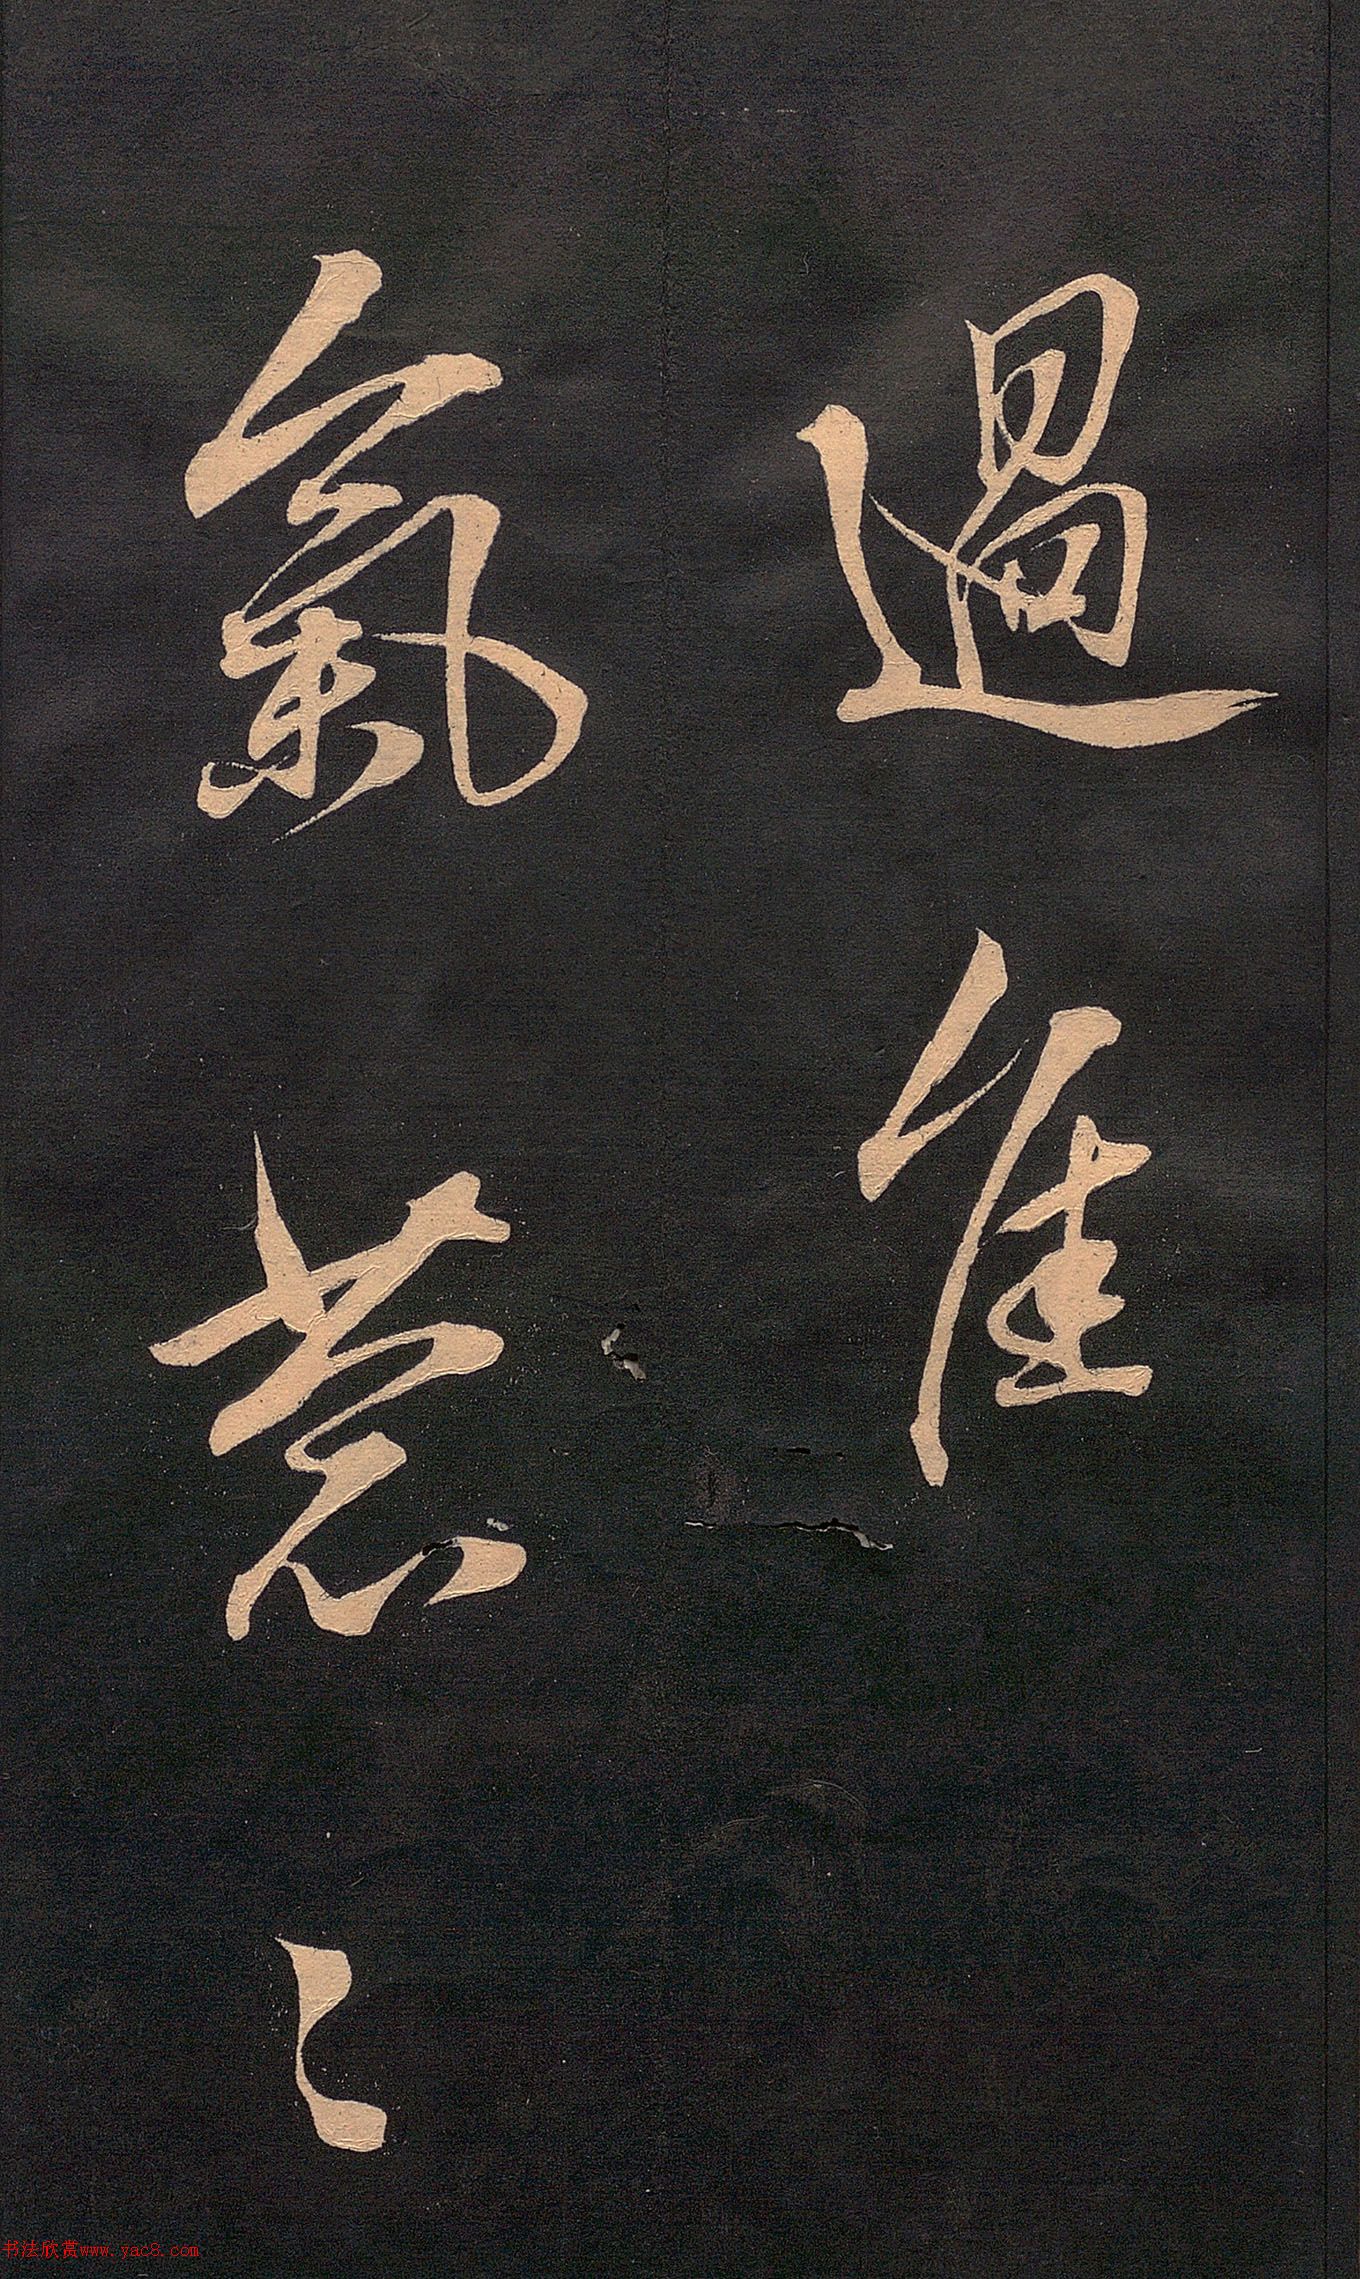 過佳
氣葱〻
书法欣赏www.yac8.com